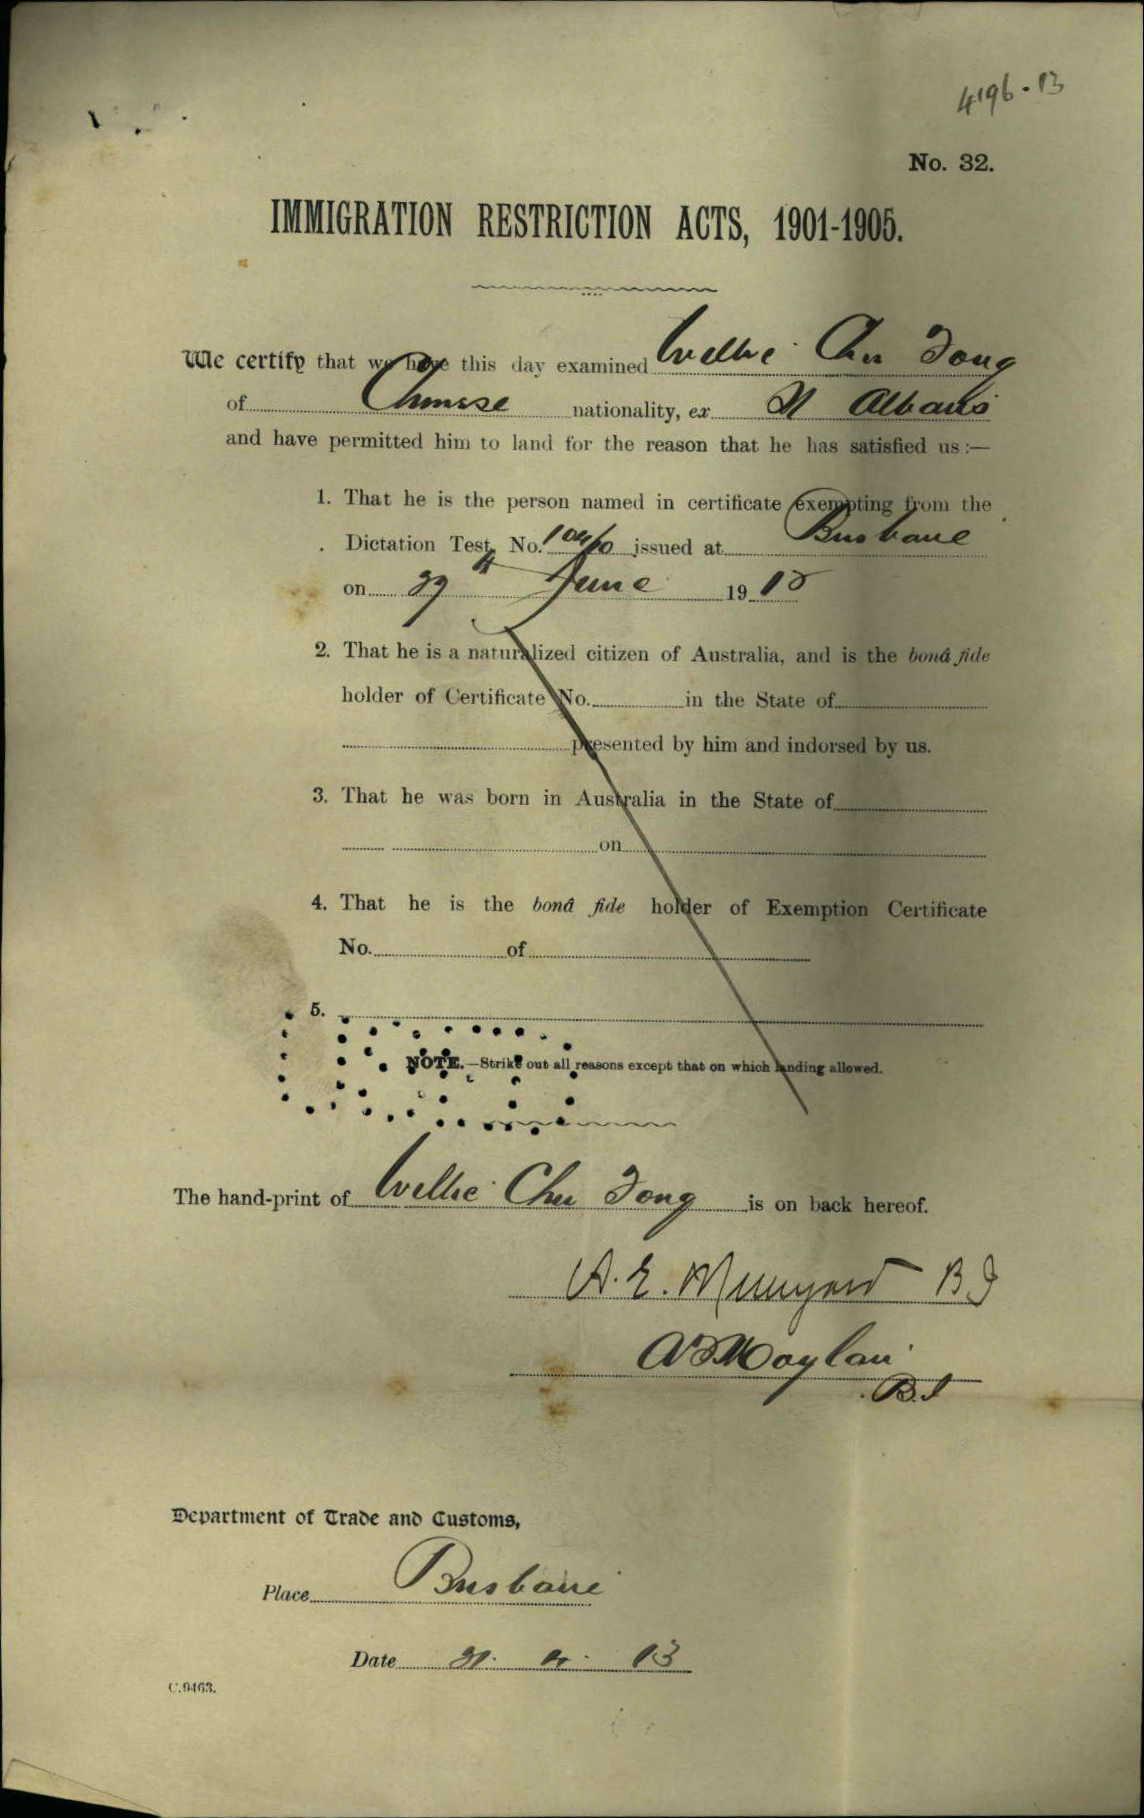 4196.13
No. 32.
IMMIGRATION RESTRICTION ACTS, 1901-1905.
We certify that we have this day examined Willie Chu Tong
of Chinese nationality, ex St Albans
and have permitted him to land for the reason that he has satisfied us :—
1. That he is the person named in certificate exempting from the
Dictation Test, No. issued at Brisbane
on 29th June 19
2. That he is a naturalized citizen of Australia, and is the bonâ fide
holder of Certificate No. in the State of
presented by him and indorsed by us.
3. That he was born in Australia in the State of
on
4. That he is the bonâ fide holder of Exemption Certificate
No. of
5.
NOTE.—Strike out all reasons except that on which landing allowed.
The hand-print of Willie Chu Tong is on back hereof.
A. E. B I
Moylan
B. I
Department of Trade and Customs,
Place Brisbane
Date 13
C.9463.